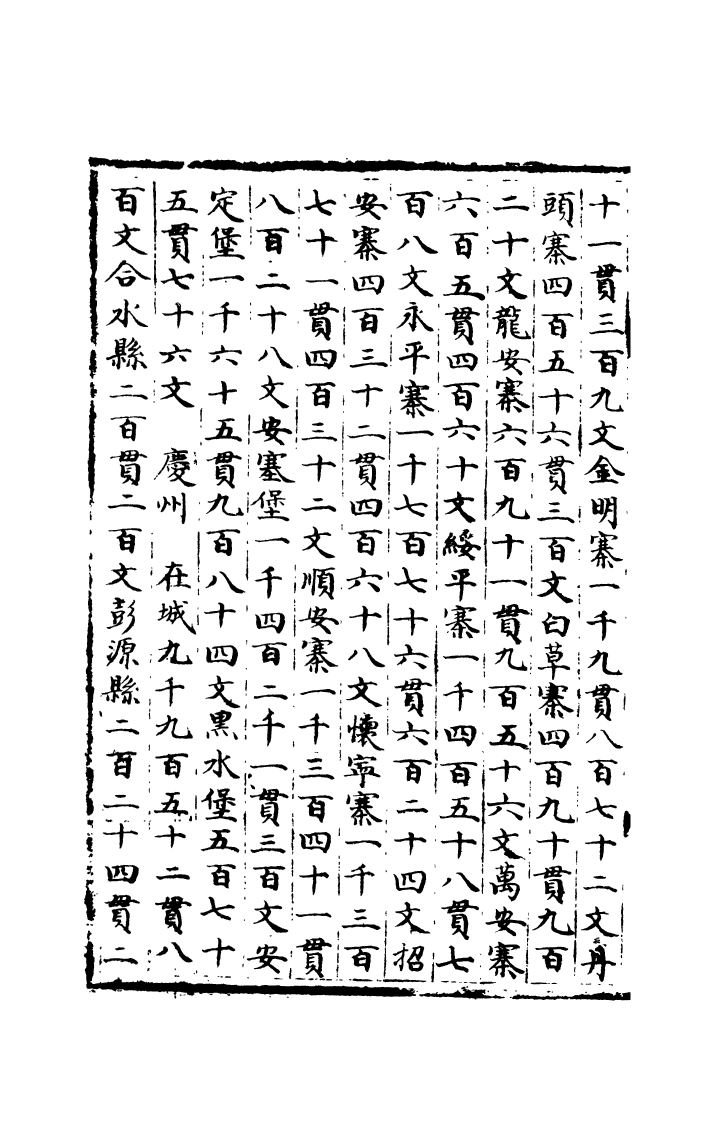 十一貫三百九文金明寨一千九貫八百七十二文丹
頭寨四百五十六貫三百文白草寨四百九十貫九百
二十文龍安寨六百九十一貫九百五十六文萬安寨
六百五貫四百六十文綏平寨一千四百五十八貫七
百八文永平寨一十七百七十六貫六百二十四文招
安寨四百三十二貫四百六十八文懷寧寨一千三百
七十一貫四百三十二文順安寨一千三百四十一貫
八百二十八文安塞堡一千四百二千一貫三百文安
定堡一千六十五貫九百八十四文黑水堡五百七十
五貫七十六文　慶州　在城九千九百五十二貫八
百文合水縣二百貫二百文彭源縣二百二十四貫二